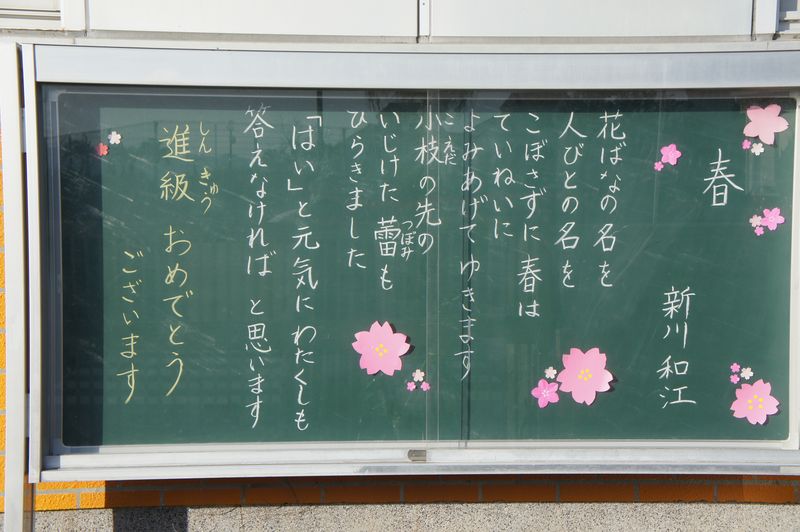 春
新川和江
花ばなの名を
人びとの名を
こぼさずに 春は
ていねいに
よみあげてゆきます
小枝の先の
こえだ
いじけた 蕾も
つぼみ
ひらきました
「はい」と元気にわたくしも
答えなければ と思います
進級 おめでとう
しんきゅう
ございます